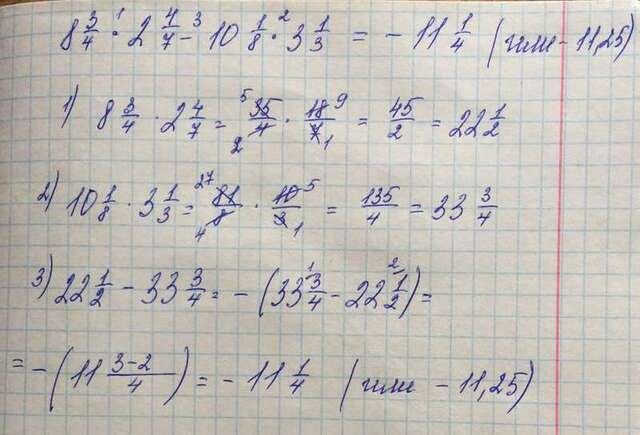 8 3/4 ·¹ 2 4/7 −³ 10 1/8 ·² 3 1/3 = − 11 1/4 (или − 11,25)
1) 8 3/4 · 2 4/7 = ⁵35/4₂ · 18⁹/7₁ = 45/2 = 22 1/2
2) 10 1/8 · 3 1/3 = ²⁷81/8₄ · 10⁵/3₁ = 135/4 = 33 3/4
3) 22 1/2 − 33 3/4 = − (33 ¹3/4 − 22 ²1/2) =
= − (11 3−2/4) = − 11 1/4 (или − 11,25)